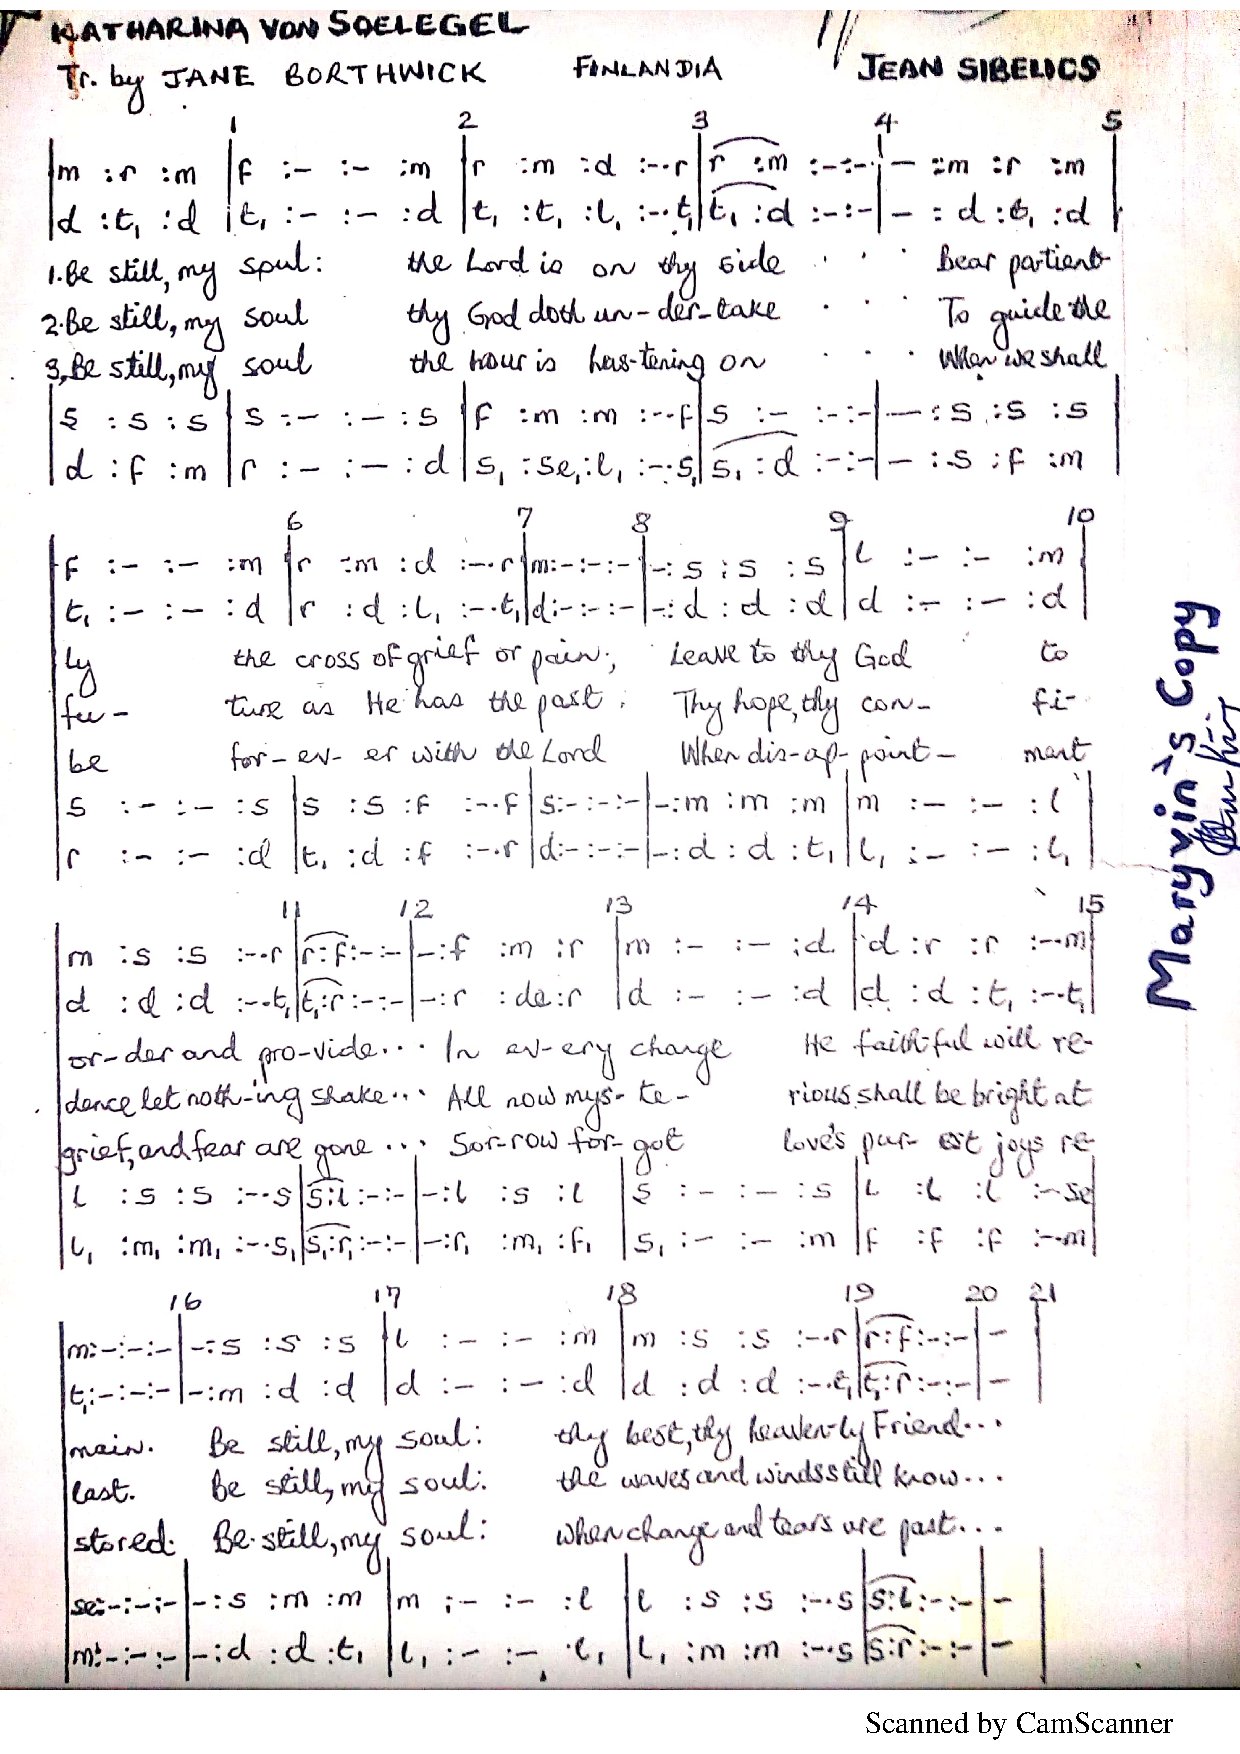 KATHARINA VON SOELEGEL
Tr. by JANE BORTHWICK FINLANDIA JEAN SIBELIUS
1 2 3 4 5
m :r :m | f :- :- :m | r :m :d :-.r | r :m :-:- | - :m :r :m |
d :t₁ :d | t₁ :- :- :d | t₁ :t₁ :l₁ :-.t₁ | t₁ :d :-:- | - :d :t₁ :d |
1. Be still, my soul: the Lord is on thy side . . . Bear patient-
2. Be still, my soul thy God doth un-der-take . . . To guide the
3, Be still, my soul the hour is has-tening on . . . When we shall
s :s :s | s :- :- :s | f :m :m :-.f | s :- :-:- | - :s :s :s |
d :f :m | r :- :- :d | s₁ :se₁ :l₁ :-.s₁ | s₁ :d :-:- | - :s :f :m |
6 7 8 9 10
f :- :- :m | r :m :d :-.r | m:-:-:- | -:s :s :s | l :- :- :m |
t₁ :- :- :d | r :d :l₁ :-.t₁ | d:-:-:- | -:d :d :d | d :- :- :d |
ly the cross of grief or pain; Leave to thy God to
fu- ture as He has the past. Thy hope, thy con- fi-
be for-ev-er with the Lord When dis-ap-point- ment
s :- :- :s | s :s :f :-.f | s:-:-:- | -:m :m :m | m :- :- :l |
r :- :- :d | t₁ :d :f :-.r | d:-:-:- | -:d :d :t₁ | l₁ :- :- :l₁ |
11 12 13 14 15
m :s :s :-.r | r:f:-:- | -:f :m :r | m :- :- :d | d :r :r :-.m |
d :d :d :-.t₁ | t₁:r:-:- | -:r :de:r | d :- :- :d | d :d :t₁ :-.t₁ |
or-der and pro-vide... In ev-ery change He faithful will re-
dence let noth-ing shake... All now mys-te- rious shall be bright at
grief, and fear are gone ... Sor-row for-got love's pur-est joys re-
l :s :s :-.s | s:l:-:- | -:l :s :l | s :- :- :s | l :l :l :-.se |
l₁ :m₁ :m₁ :-.s₁ | s₁:r₁:-:- | -:r₁ :m₁ :f₁ | s₁ :- :- :m | f :f :f :-.m |
16 17 18 19 20 21
m:-:-:- | -:s :s :s | l :- :- :m | m :s :s :-.r | r:f:-:- | - |
t₁:-:-:- | -:m :d :d | d :- :- :d | d :d :d :-.t₁ | t₁:r:-:- | - |
main. Be still, my soul: thy best, thy heaven-ly Friend...
last. Be still, my soul: the waves and winds still know...
stored. Be still, my soul: when change and tears are past...
se:-:-:- | -:s :m :m | m :- :- :l | l :s :s :-.s | s:l:-:- | - |
m:-:-:- | -:d :d :t₁ | l₁ :- :- :l₁ | l₁ :m :m :-.s | s:r:-:- | - |
Maryvin's Copy
Scanned by CamScanner